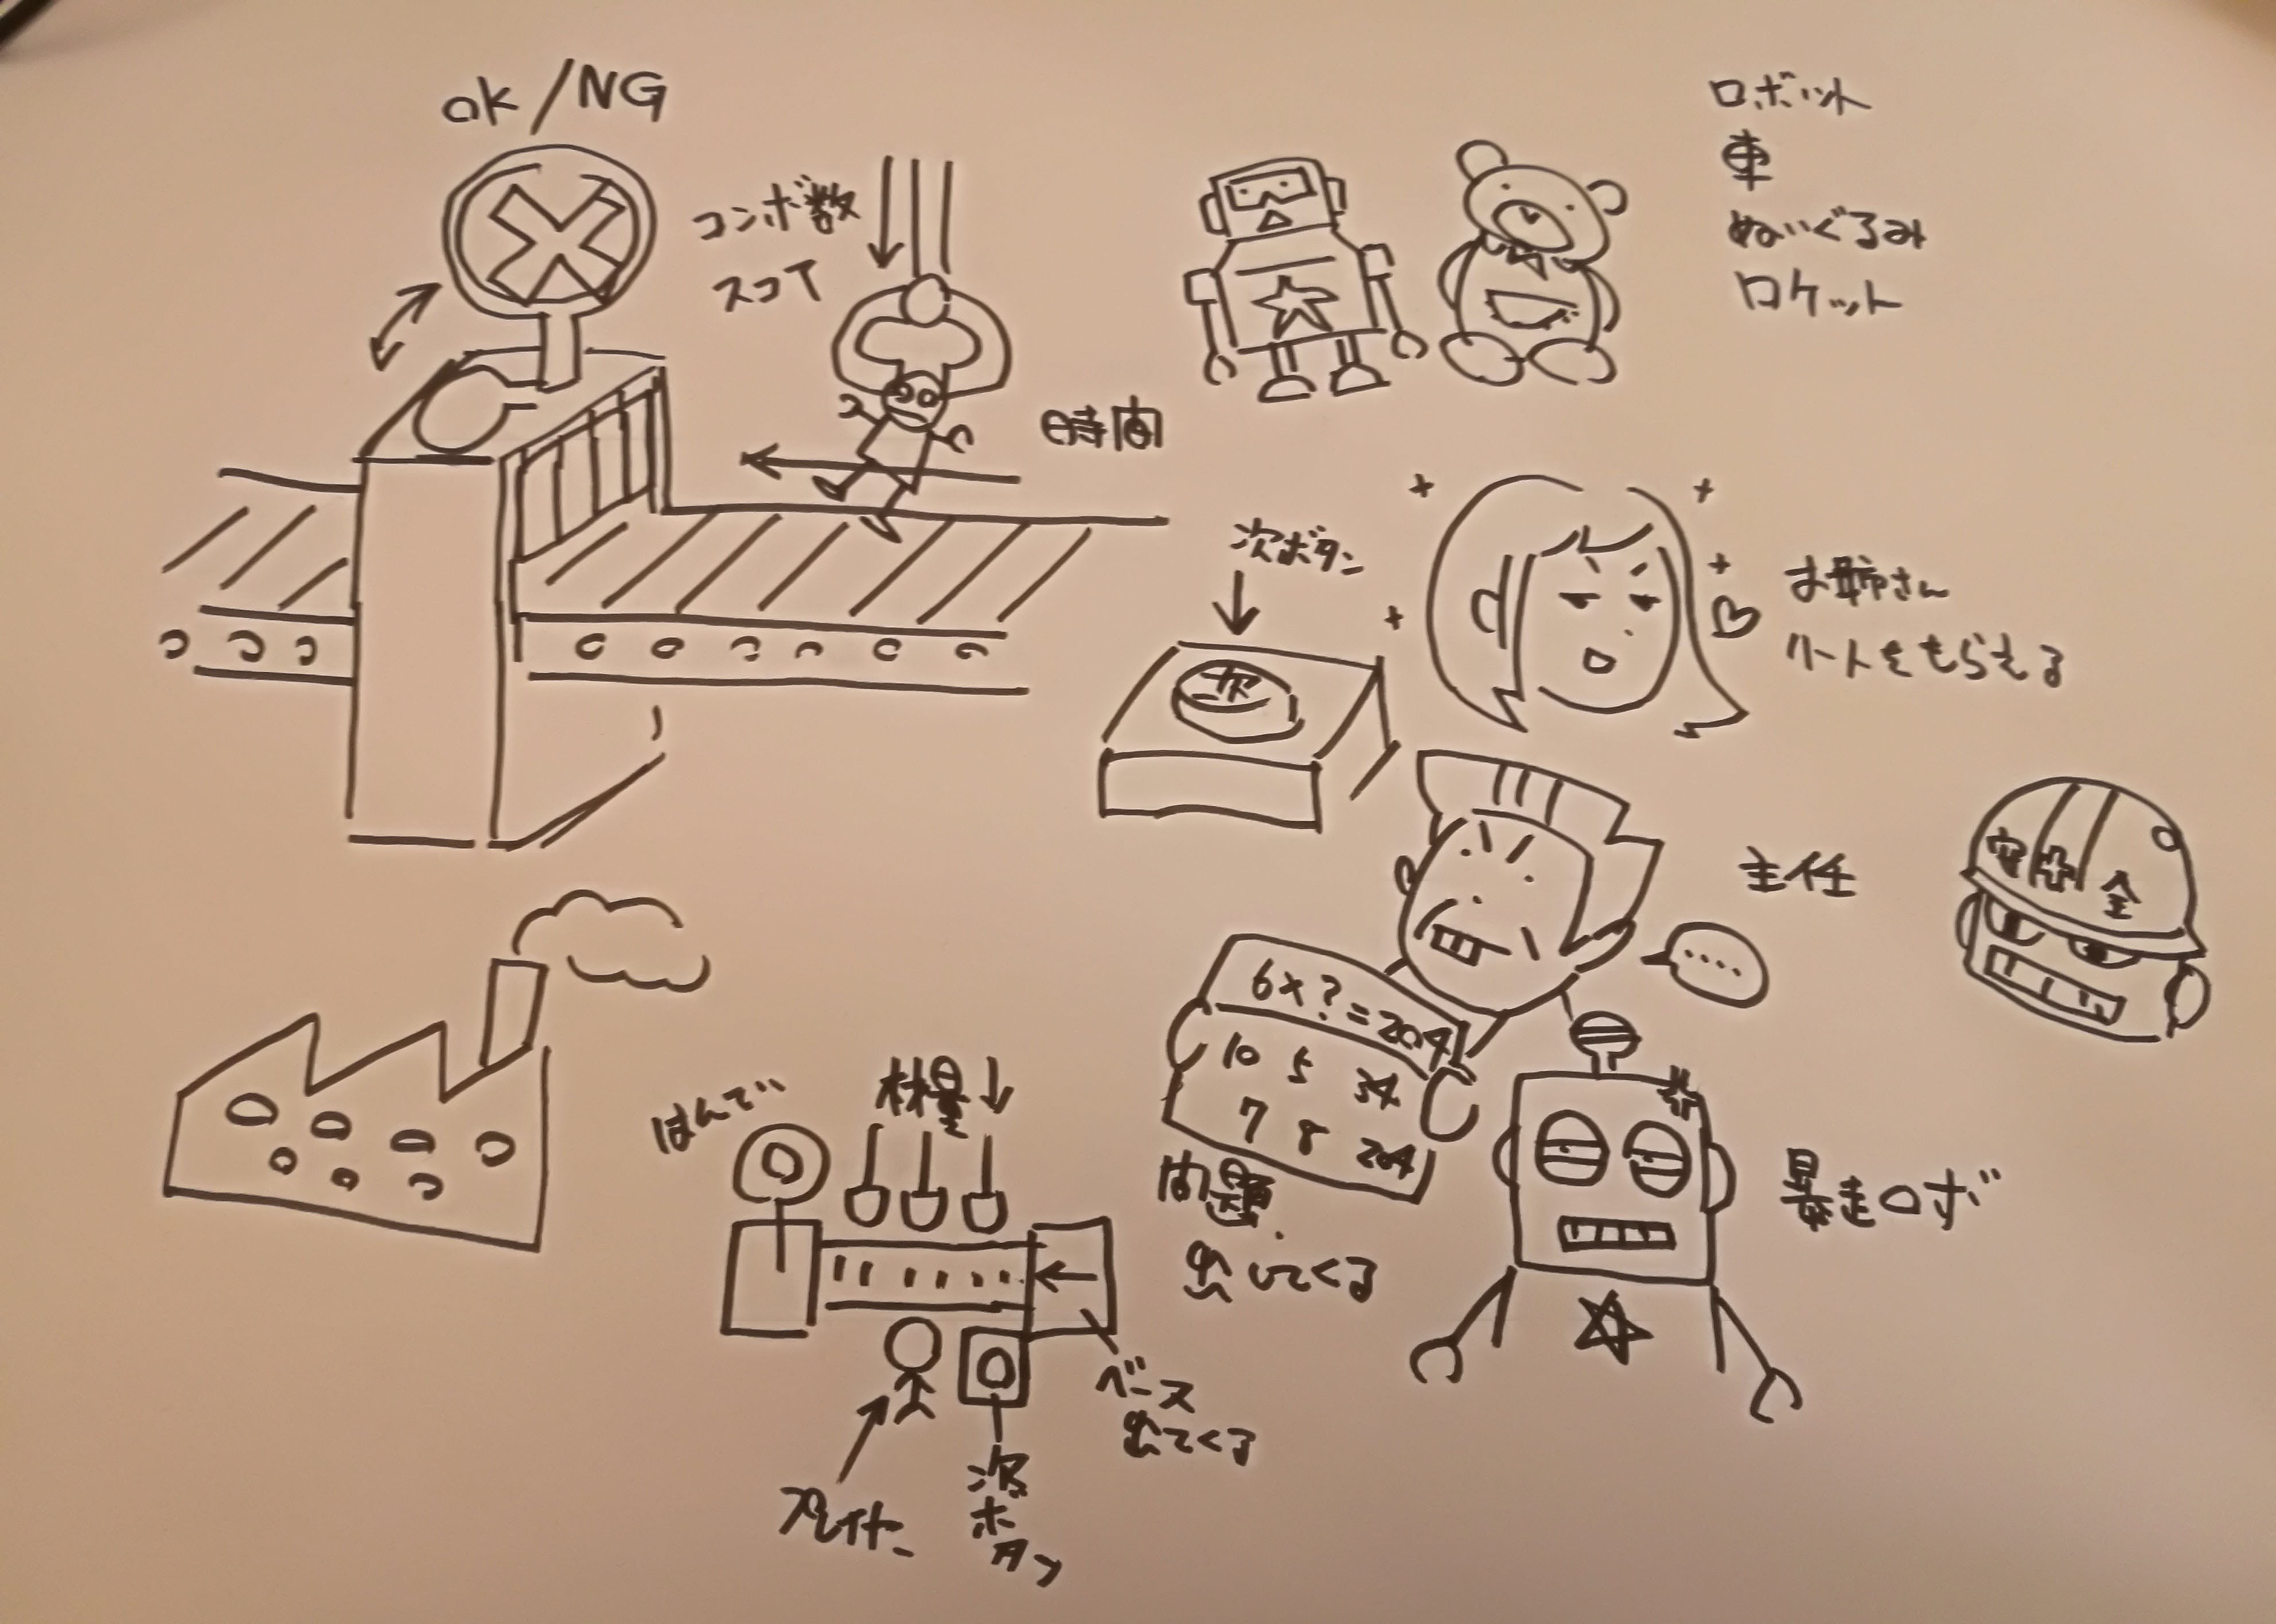 OK/NG
コンボ数
スコア
時間
ロボット
車
ぬいぐるみ
ロケット
次ボタン
次
お姉さん
ハートをもらえる
主任
安全
....
6×?=204
10 5 34
7 8 204
問題
出してくる
暴走ロボ
はんてい
材量
ベース
出てくる
プレイヤー
次
ボ
タン